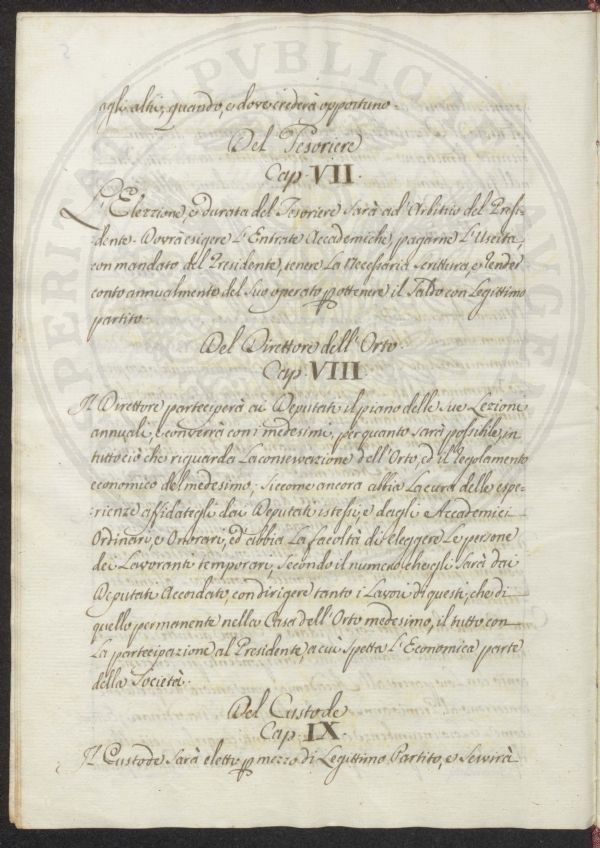 agli altri, quando, e dove crederà opportuno.
Del Tesoriere
Cap. VII.
L'Elezzione, e durata del Tesoriere sarà ad Arbitrio del Presi-
dente. Dovrà esigere L'Entrate Accademiche, pagarne L'Uscita,
con mandato del Presidente, tenere La Necessaria scrittura, e Render
conto annualmente del suo operato p ottenere il Saldo con Legittimo
partito.
Del Direttore dell'Orto.
Cap. VIII.
Il Direttore parteciperà ai Deputati il piano delle sue Lezioni
annuali, e converrà con i medesimi, per quanto sarà possibile, in
tutto ciò che riguarda La conservazione dell'Orto, ed il Regolamento
economico del medesimo. Siccome ancora abbia La cura delle espe-
rienze affidategli dai Deputati istessi, e dagli Accademici
Ordinari, e Onorari, ed abbia La facoltà di eleggere Le persone
dei Lavoranti temporari, secondo il numero che gli sarà dai
Deputati Accordato, con dirigere tanto i Lavori di questi, che di
quello permanente nella Casa dell'Orto medesimo, il tutto con
La partecipazione al Presidente, a cui spetta L'Economica parte
della Società.
Del Custode
Cap. IX.
Il Custode sarà eletto p mezzo di Legittimo Partito, e Servirà
PVBLICAE